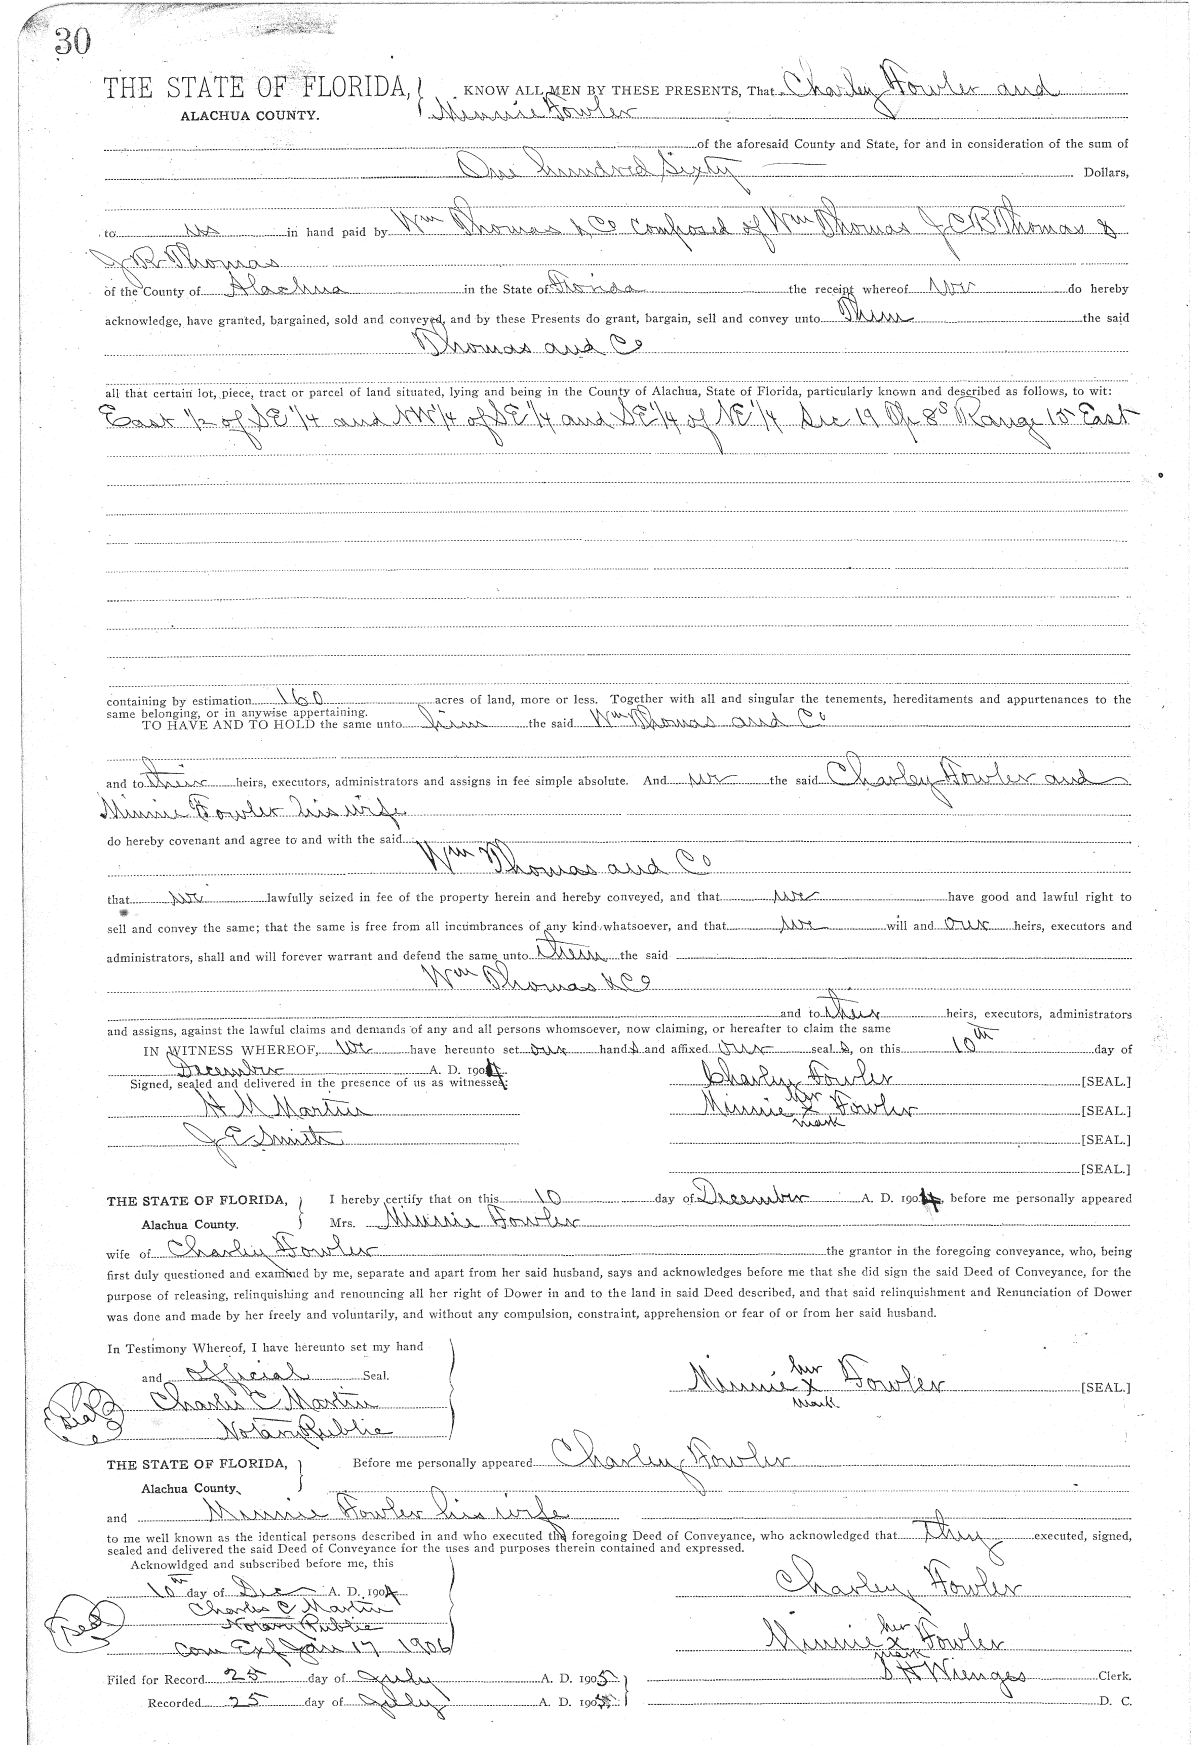 30
THE STATE OF FLORIDA, } KNOW ALL MEN BY THESE PRESENTS, That Charley Fowler and
ALACHUA COUNTY. Minnie Fowler
of the aforesaid County and State, for and in consideration of the sum of
One hundred Sixty Dollars,
to us in hand paid by Wm Thomas & Co composed of Wm Thomas J C B Thomas &
J R Thomas
of the County of Alachua in the State of Florida the receipt whereof we do hereby
acknowledge, have granted, bargained, sold and conveyed, and by these Presents do grant, bargain, sell and convey unto Them the said
Thomas and Co
all that certain lot, piece, tract or parcel of land situated, lying and being in the County of Alachua, State of Florida, particularly known and described as follows, to wit:
East 1/2 of SE 1/4 and NW 1/4 of SE 1/4 and SE 1/4 of NE 1/4 Sec 19 Tp 8 S Range 18 East
containing by estimation 160 acres of land, more or less. Together with all and singular the tenements, hereditaments and appurtenances to the
same belonging, or in anywise appertaining.
TO HAVE AND TO HOLD the same unto him the said Wm Thomas and Co
and to their heirs, executors, administrators and assigns in fee simple absolute. And we the said Charley Fowler and
Minnie Fowler his wife
do hereby covenant and agree to and with the said
Wm Thomas and Co
that we lawfully seized in fee of the property herein and hereby conveyed, and that we have good and lawful right to
sell and convey the same; that the same is free from all incumbrances of any kind whatsoever, and that we will and our heirs, executors and
administrators, shall and will forever warrant and defend the same unto them the said
Wm Thomas & Co
and to their heirs, executors, administrators
and assigns, against the lawful claims and demands of any and all persons whomsoever, now claiming, or hereafter to claim the same
IN WITNESS WHEREOF, we have hereunto set our hands and affixed our seals, on this 10th day of
December A. D. 1904
Signed, sealed and delivered in the presence of us as witnesses: Charley Fowler [SEAL.]
H M Martin Minnie her x mark Fowler [SEAL.]
J E Smith [SEAL.]
[SEAL.]
THE STATE OF FLORIDA, } I hereby certify that on this 10 day of December A. D. 1904, before me personally appeared
Alachua County. Mrs. Minnie Fowler
wife of Charley Fowler the grantor in the foregoing conveyance, who, being
first duly questioned and examined by me, separate and apart from her said husband, says and acknowledges before me that she did sign the said Deed of Conveyance, for the
purpose of releasing, relinquishing and renouncing all her right of Dower in and to the land in said Deed described, and that said relinquishment and Renunciation of Dower
was done and made by her freely and voluntarily, and without any compulsion, constraint, apprehension or fear of or from her said husband.
In Testimony Whereof, I have hereunto set my hand
and official Seal. Minnie her x mark Fowler [SEAL.]
Seal Charles C Martin
Notary Public
THE STATE OF FLORIDA, } Before me personally appeared Charley Fowler
Alachua County.
and Minnie Fowler his wife
to me well known as the identical persons described in and who executed the foregoing Deed of Conveyance, who acknowledged that they executed, signed,
sealed and delivered the said Deed of Conveyance for the uses and purposes therein contained and expressed.
Acknowldged and subscribed before me, this
10th day of Dec A. D. 1904 Charley Fowler
Seal Charles C Martin
Notary Public
Com Exp Jan 17 1906 Minnie her x mark Fowler
Filed for Record 25 day of July A. D. 1905 S H Wienges Clerk.
Recorded 25 day of July A. D. 1905 D. C.